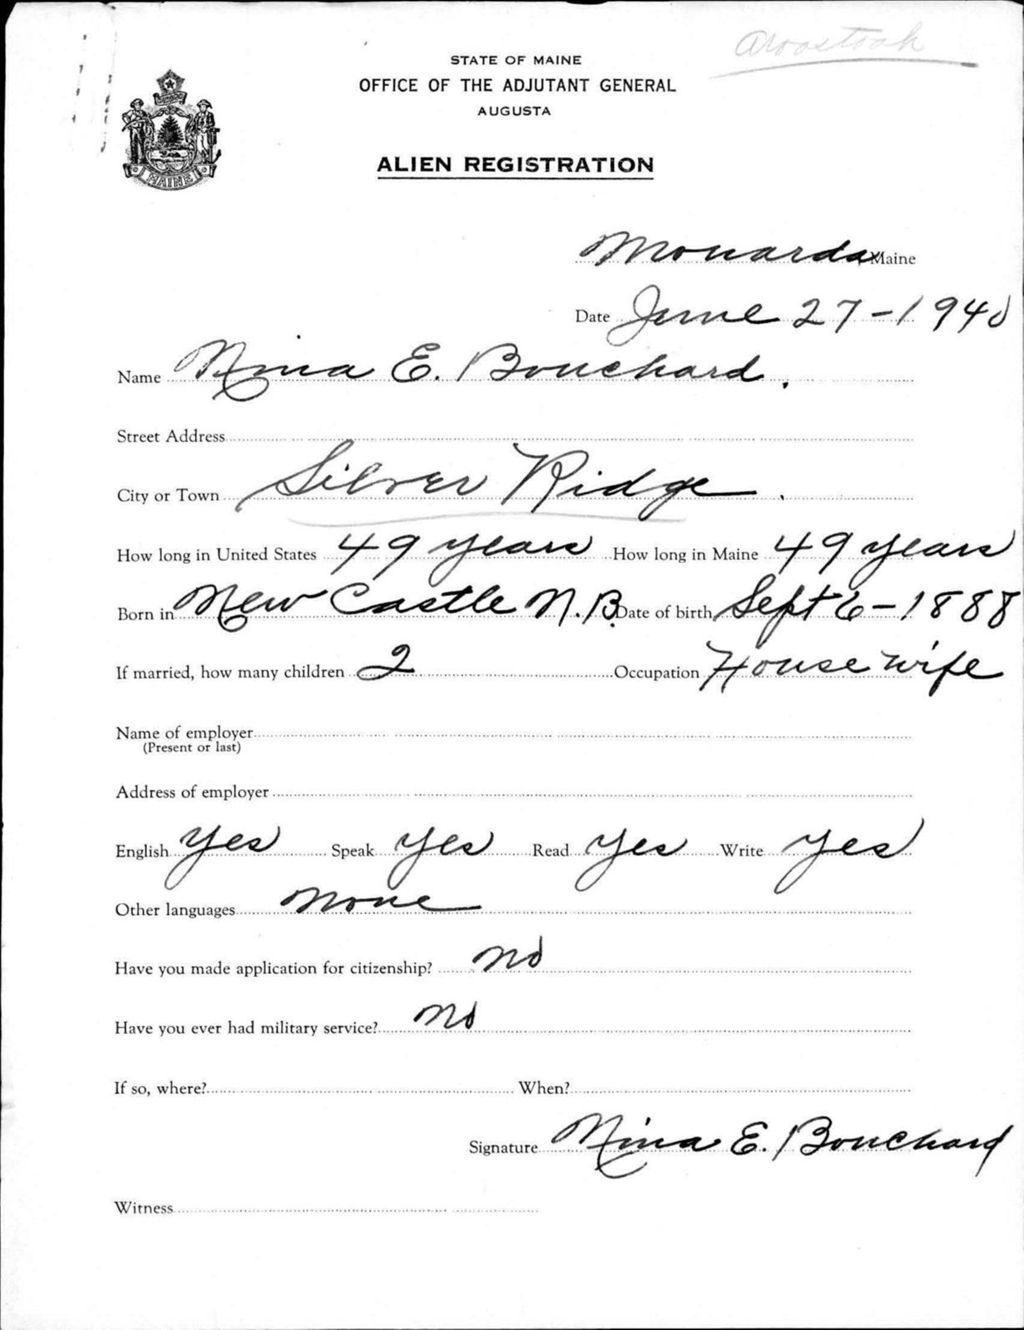 Aroostook
STATE OF MAINE
OFFICE OF THE ADJUTANT GENERAL
AUGUSTA
ALIEN REGISTRATION
MAINE
Monarda, Maine
Date June 27-1940
Name Nina E. Bouchard.
Street Address
City or Town Silver Ridge.
How long in United States 49 years How long in Maine 49 years
Born in New Castle N.B. Date of birth Sept 6-1888
If married, how many children 2 Occupation House wife
Name of employer
(Present or last)
Address of employer
English yes Speak yes Read yes Write yes
Other languages none
Have you made application for citizenship? no
Have you ever had military service? no
If so, where? When?
Signature Nina E. Bouchard
Witness